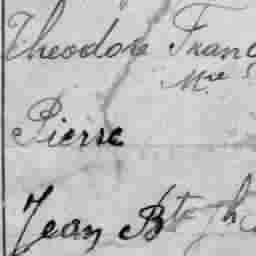 Theodore Franc
Mie
Pierre
Jean Bte